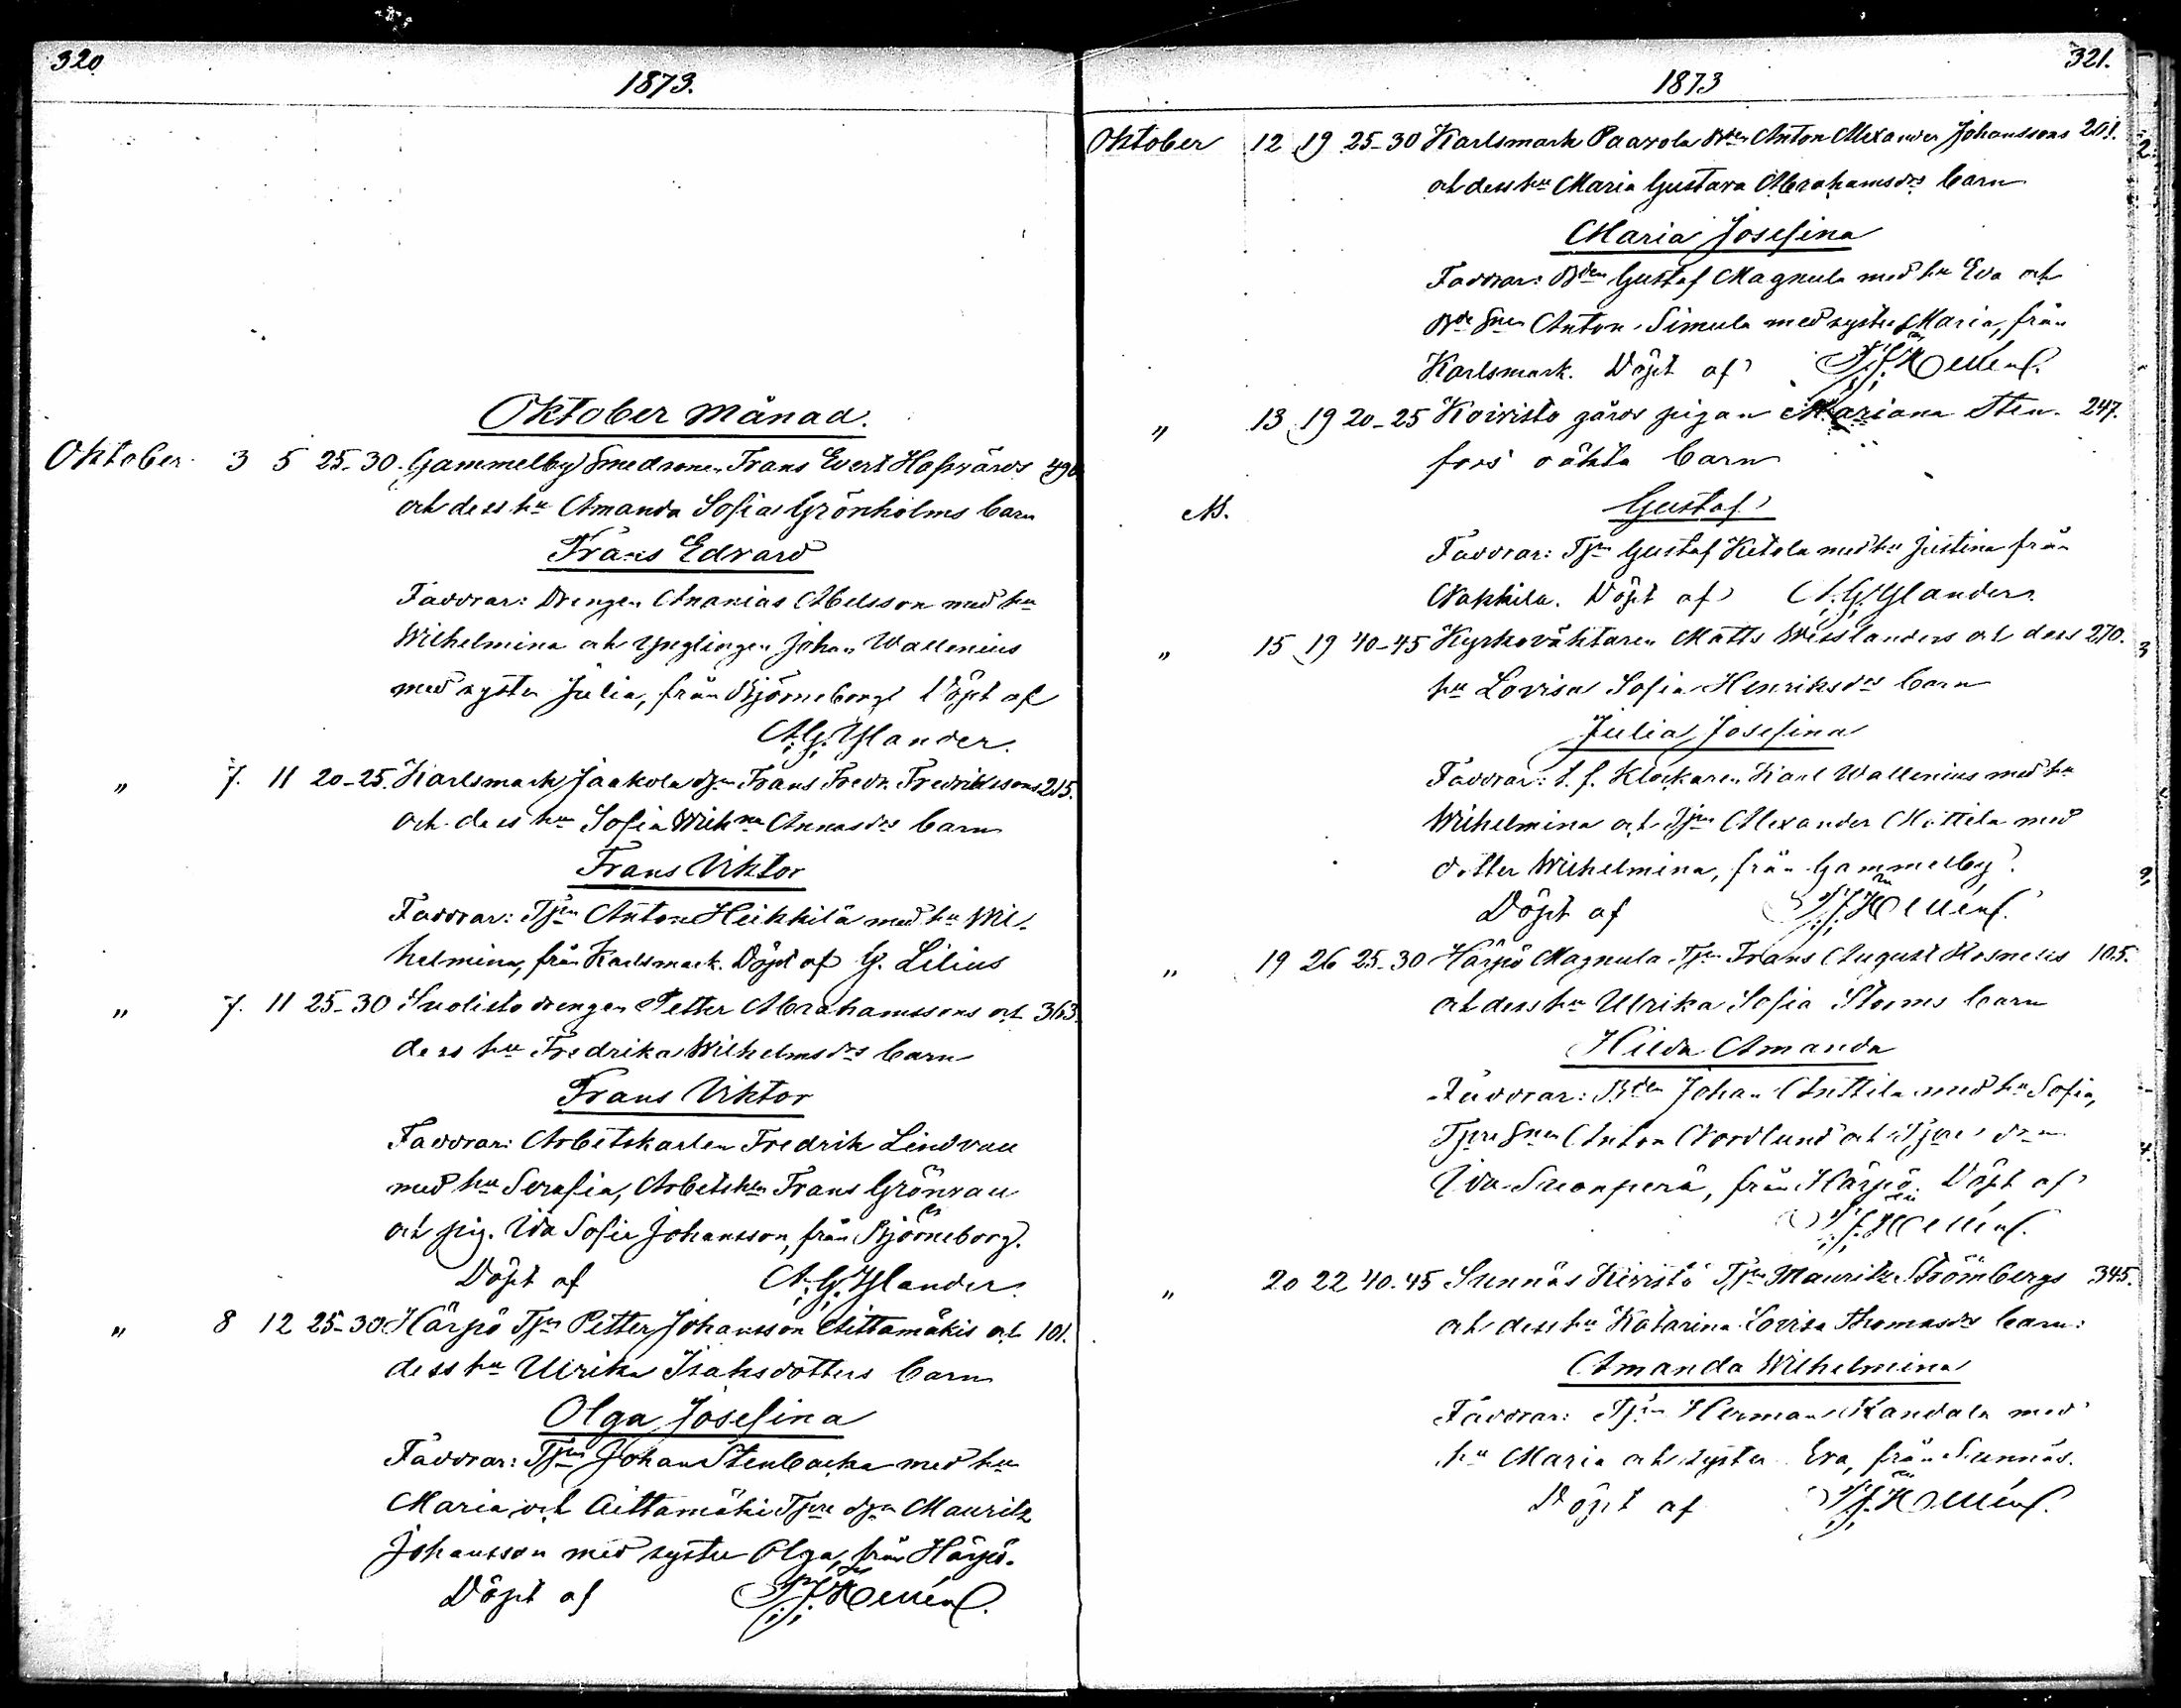 320.
1873.
Oktober Månad.
Oktober 3 5 25-30. Gammelby Smedsonen Frans Evert Hofvärds 496
och dess hu Amanda Sofia Grönholms barn
Frans Edvard
Faddrar: Drengen Ananias Abelsson med hu
Wilhelmina och Ynglingen Johan Wallenius
med syster Julia, från Björneborg Döpt af
A. G. Ylander.
" 7. 11 20-25. Karlsmark Jaakola Frans Fredr. Fredrikssons 215.
och dess hu Sofia Wilhna Annasdrs barn
Frans Viktor
Faddrar: Tjn Anton Heikkilä med hu Wil-
helmina, från Karlsmark. Döpt af G. Lilius
" 7. 11 25-30 Suolisto drengen Petter Abrahamssons och 363.
dess hu Fredrika Wilhelmsdrs barn
Frans Viktor
Faddrar: Arbetskarlen Fredrik Lindvall
med hu Serafia, Arbetskn Frans Grönvall
och pig. Ida Sofia Johansson, från Björneborg.
Döpt af A. G. Ylander.
" 8 12 25-30 Härpö Tjn Petter Johansson Aittamäkis och 101.
dess hu Ulrika Isaksdotters barn
Olga Josefina
Faddrar: Tjn Johan Stenbacka med hu
Maria och Aittamäki Tjre Mauritz
Johansson med syster Olga, från Härpö.
Döpt af Hellén
321.
1873
Oktober 12 19 25-30 Karlsmark Paavola Bden Anton Alexander Johanssons 201.
och dess hu Maria Gustava Abrahamsdrs barn
Maria Josefina
Faddrar: Bden Gustaf Magnula med hu Eva och
Bde Snen Anton Simula med syster Maria, från
Karlsmark. Döpt af Hellén
" 13 19 20-25 Koivisto gårds pigan Mariana Sten- 247.
fors' oäkta barn
N.
Gustaf
Faddrar: Tjn Gustaf Ketola med hu Justina från
Nakkila. Döpt af A. G. Ylander.
" 15 19 40-45 Kyrkoväktaren Matts Wisslanders och dess 270.
hu Lovisa Sofia Henriksdrs barn
Julia Josefina
Faddrar: t. f. Klockaren Karl Wallenius med hu
Wilhelmina och Tjn Alexander Mattila med
dotter Wilhelmina, från Gammelby.
Döpt af Hellén
" 19 26 25-30 Härpö Magnula Tjn Frans August 105.
och dess hu Ulrika Sofia Storms barn
Hilda Amanda
Faddrar: Bden Johan Anttila med hu Sofia,
Tjre Snen Anton Nordlund och Tjre
Ida Suonperä, från Härpö. Döpt af
Hellén
" 20 22 40-45 Sunnäs Kivistö Tjn Mauritz Strömbergs 345.
och dess hu Katarina Lovisa Thomasdrs barn:
Amanda Wilhelmina
Faddrar: Tjn Herman Kandala med
hu Maria och syster Eva, från Sunnäs.
Döpt af Hellén